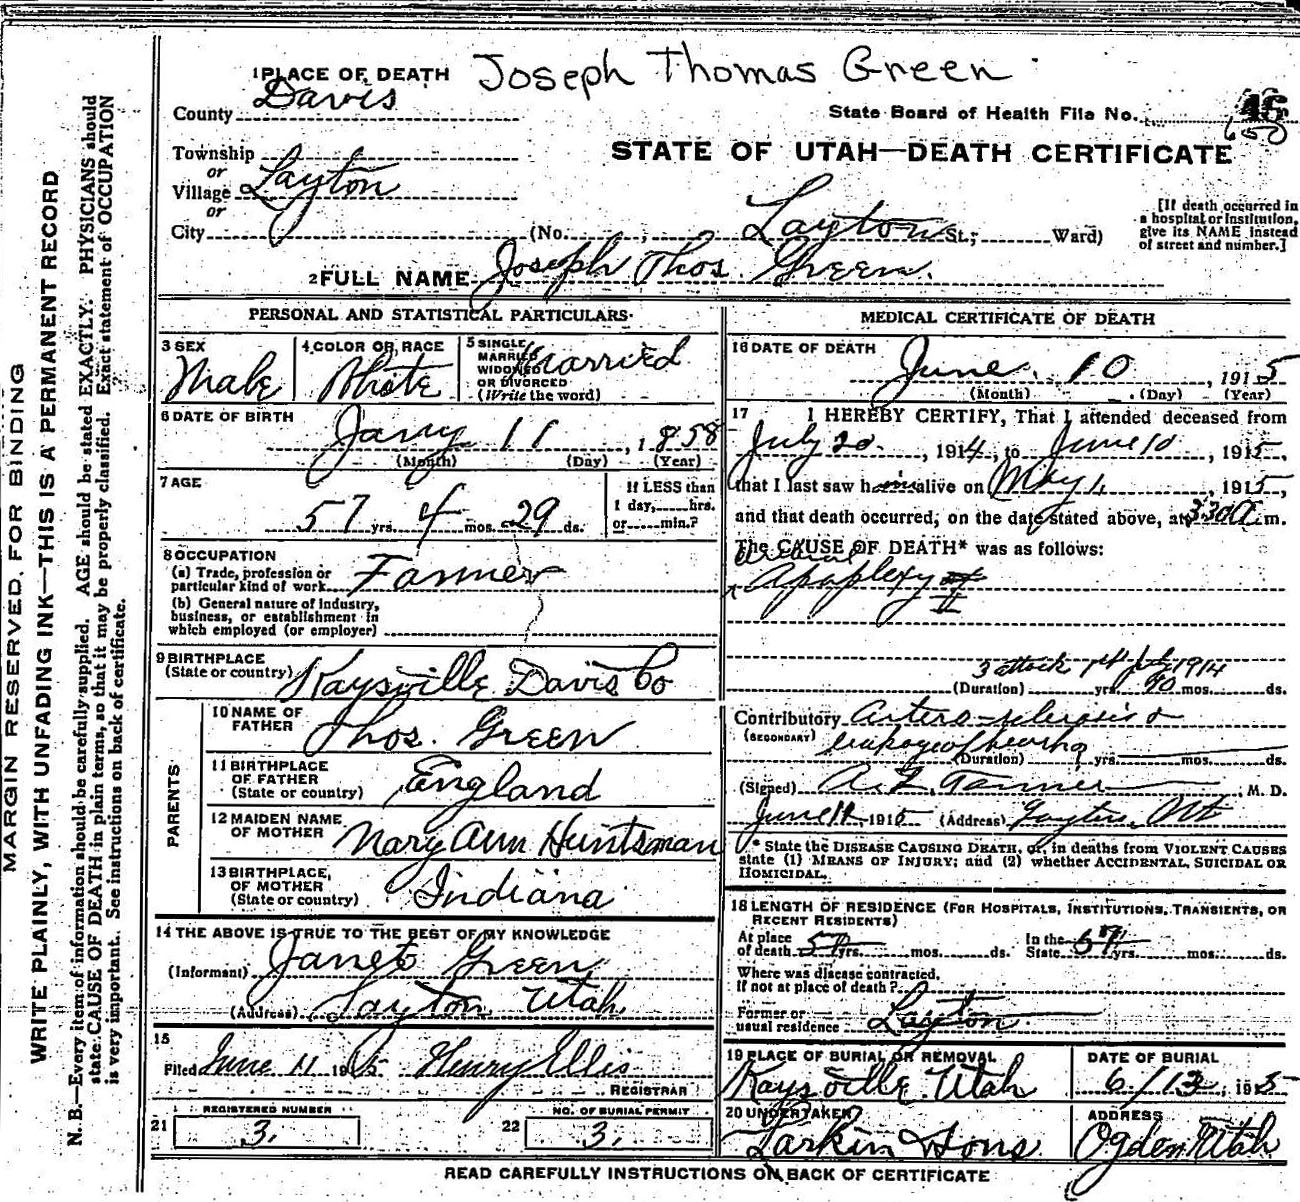 MARGIN RESERVED FOR BINDING
WRITE PLAINLY, WITH UNFADING INK—THIS IS A PERMANENT RECORD
N. B.—Every item of information should be carefully supplied. AGE should be stated EXACTLY. PHYSICIANS should
state CAUSE OF DEATH in plain terms, so that it may be properly classified. Exact statement of OCCUPATION
is very important. See instructions on back of certificate.
Joseph Thomas Green
1 PLACE OF DEATH
County Davis
State Board of Health File No.
STATE OF UTAH—DEATH CERTIFICATE
Township
or
Village Layton
or
City (No. , Layton St.; Ward)
[If death occurred in
a hospital or institution,
give its NAME instead
of street and number.]
2 FULL NAME Joseph Thos. Green.
PERSONAL AND STATISTICAL PARTICULARS
3 SEX
Male
4 COLOR OR RACE
White
5 SINGLE
MARRIED
WIDOWED
OR DIVORCED
(Write the word)
Married
6 DATE OF BIRTH
Jany 11, 1858
(Month) (Day) (Year)
7 AGE
57 yrs. 4 mos. 29 ds.
If LESS than
1 day, hrs.
or min.?
8 OCCUPATION
(a) Trade, profession or
particular kind of work Farmer
(b) General nature of industry,
business, or establishment in
which employed (or employer)
9 BIRTHPLACE
(State or country) Kaysville Davis Co
PARENTS
10 NAME OF
FATHER Thos. Green
11 BIRTHPLACE
OF FATHER
(State or country) England
12 MAIDEN NAME
OF MOTHER Mary Ann Huntsman
13 BIRTHPLACE,
OF MOTHER
(State or country) Indiana
14 THE ABOVE IS TRUE TO THE BEST OF MY KNOWLEDGE
(Informant) Janet Green
(Address) Layton Utah
15
Filed June 11 1915 Henry Ellis
REGISTRAR
21 REGISTERED NUMBER
3.
22 NO. OF BURIAL PERMIT
3.
MEDICAL CERTIFICATE OF DEATH
16 DATE OF DEATH
June. 10, 1915
(Month) (Day) (Year)
17 I HEREBY CERTIFY, That I attended deceased from
July 20, 1914, to June 10, 1915,
that I last saw him alive on May 1, 1915,
and that death occurred, on the date stated above, at 330 a. m.
The CAUSE OF DEATH* was as follows:
Apoplexy
3 attack 1st July 1914
(Duration) yrs. mos. ds.
Contributory Artero-sclerosis &
(SECONDARY) leakage of
(Duration) yrs. mos. ds.
(Signed) Tanner, M. D.
June 11 1915 (Address) Layton, Ut
* State the DISEASE CAUSING DEATH, or, in deaths from VIOLENT CAUSES
state (1) MEANS OF INJURY; and (2) whether ACCIDENTAL, SUICIDAL OR
HOMICIDAL.
18 LENGTH OF RESIDENCE (FOR HOSPITALS, INSTITUTIONS, TRANSIENTS, OR
RECENT RESIDENTS)
At place
of death 57 yrs. mos. ds.
In the
State 57 yrs. mos. ds.
Where was disease contracted,
if not at place of death?
Former or
usual residence Layton
19 PLACE OF BURIAL OR REMOVAL
Kaysville Utah
DATE OF BURIAL
6/13, 1915
20 UNDERTAKER
Larkin & Sons.
ADDRESS
Ogden Utah
READ CAREFULLY INSTRUCTIONS ON BACK OF CERTIFICATE